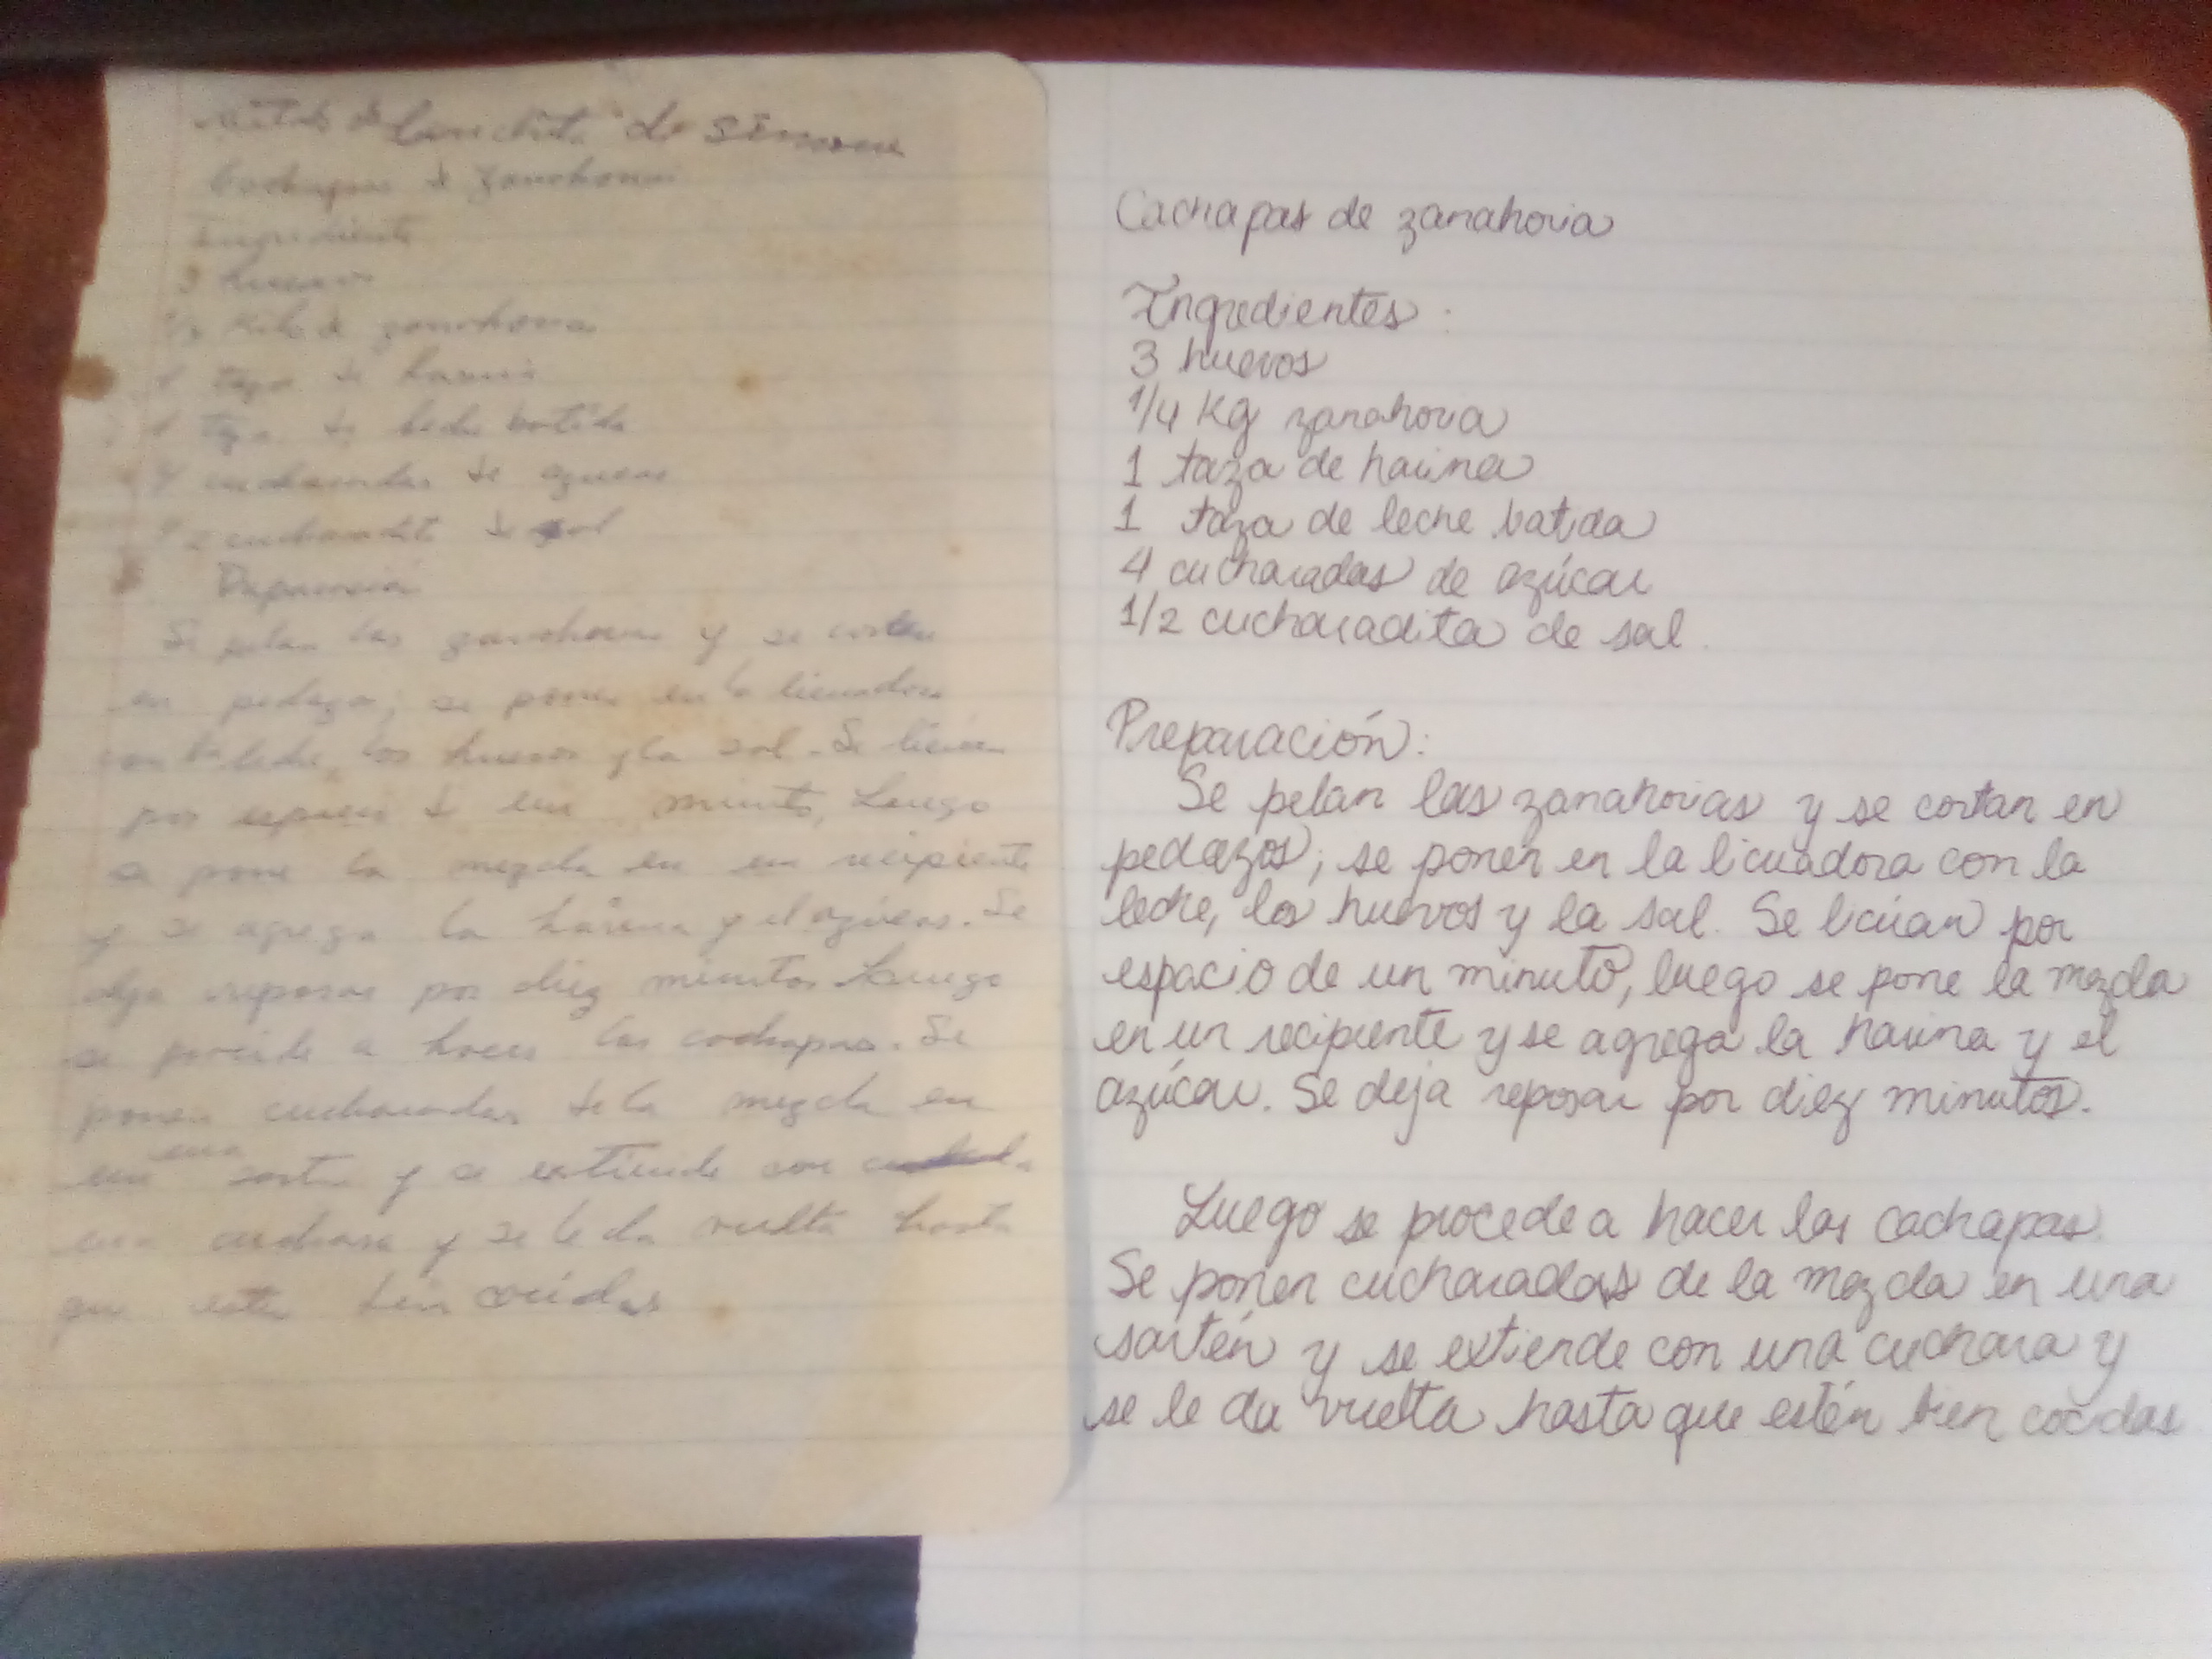 de Conchita de Simone
Cachapas de zanahoria
Ingredientes
3 huevos
Kilo de zanahoria
1 taza de harina
1 taza de leche batida
4 cucharadas de azucar
1/2 cucharadita de sal
Se pelan las zanahorias y se cortan
en pedazos; se ponen en la licuadora
con la leche, los huevos y la sal. Se licúan
por espacio de un minuto, Luego
se pone la mezcla en un recipiente
y se agrega la harina y el azúcar. Se
deja reposar por diez minutos Luego
se procede a hacer las cachapas. Se
ponen cucharadas de la mezcla en
una sarten y se extiende con
una cuchara y se le da vuelta hasta
que esten bien cocidas
Cachapas de zanahoria
Ingredientes:
3 huevos
1/4 Kg zanahoria
1 taza de harina
1 taza de leche batida
4 cucharadas de azúcar
1/2 cucharadita de sal.
Preparación:
Se pelan las zanahorias y se cortan en
pedazos; se ponen en la licuadora con la
leche, los huevos y la sal. Se licúan por
espacio de un minuto, luego se pone la mezcla
en un recipiente y se agrega la harina y el
azúcar. Se deja reposar por diez minutos.
Luego se procede a hacer las cachapas.
Se ponen cucharadas de la mezcla en una
sartén y se extiende con una cuchara y
se le da vuelta hasta que estén bien cocidas